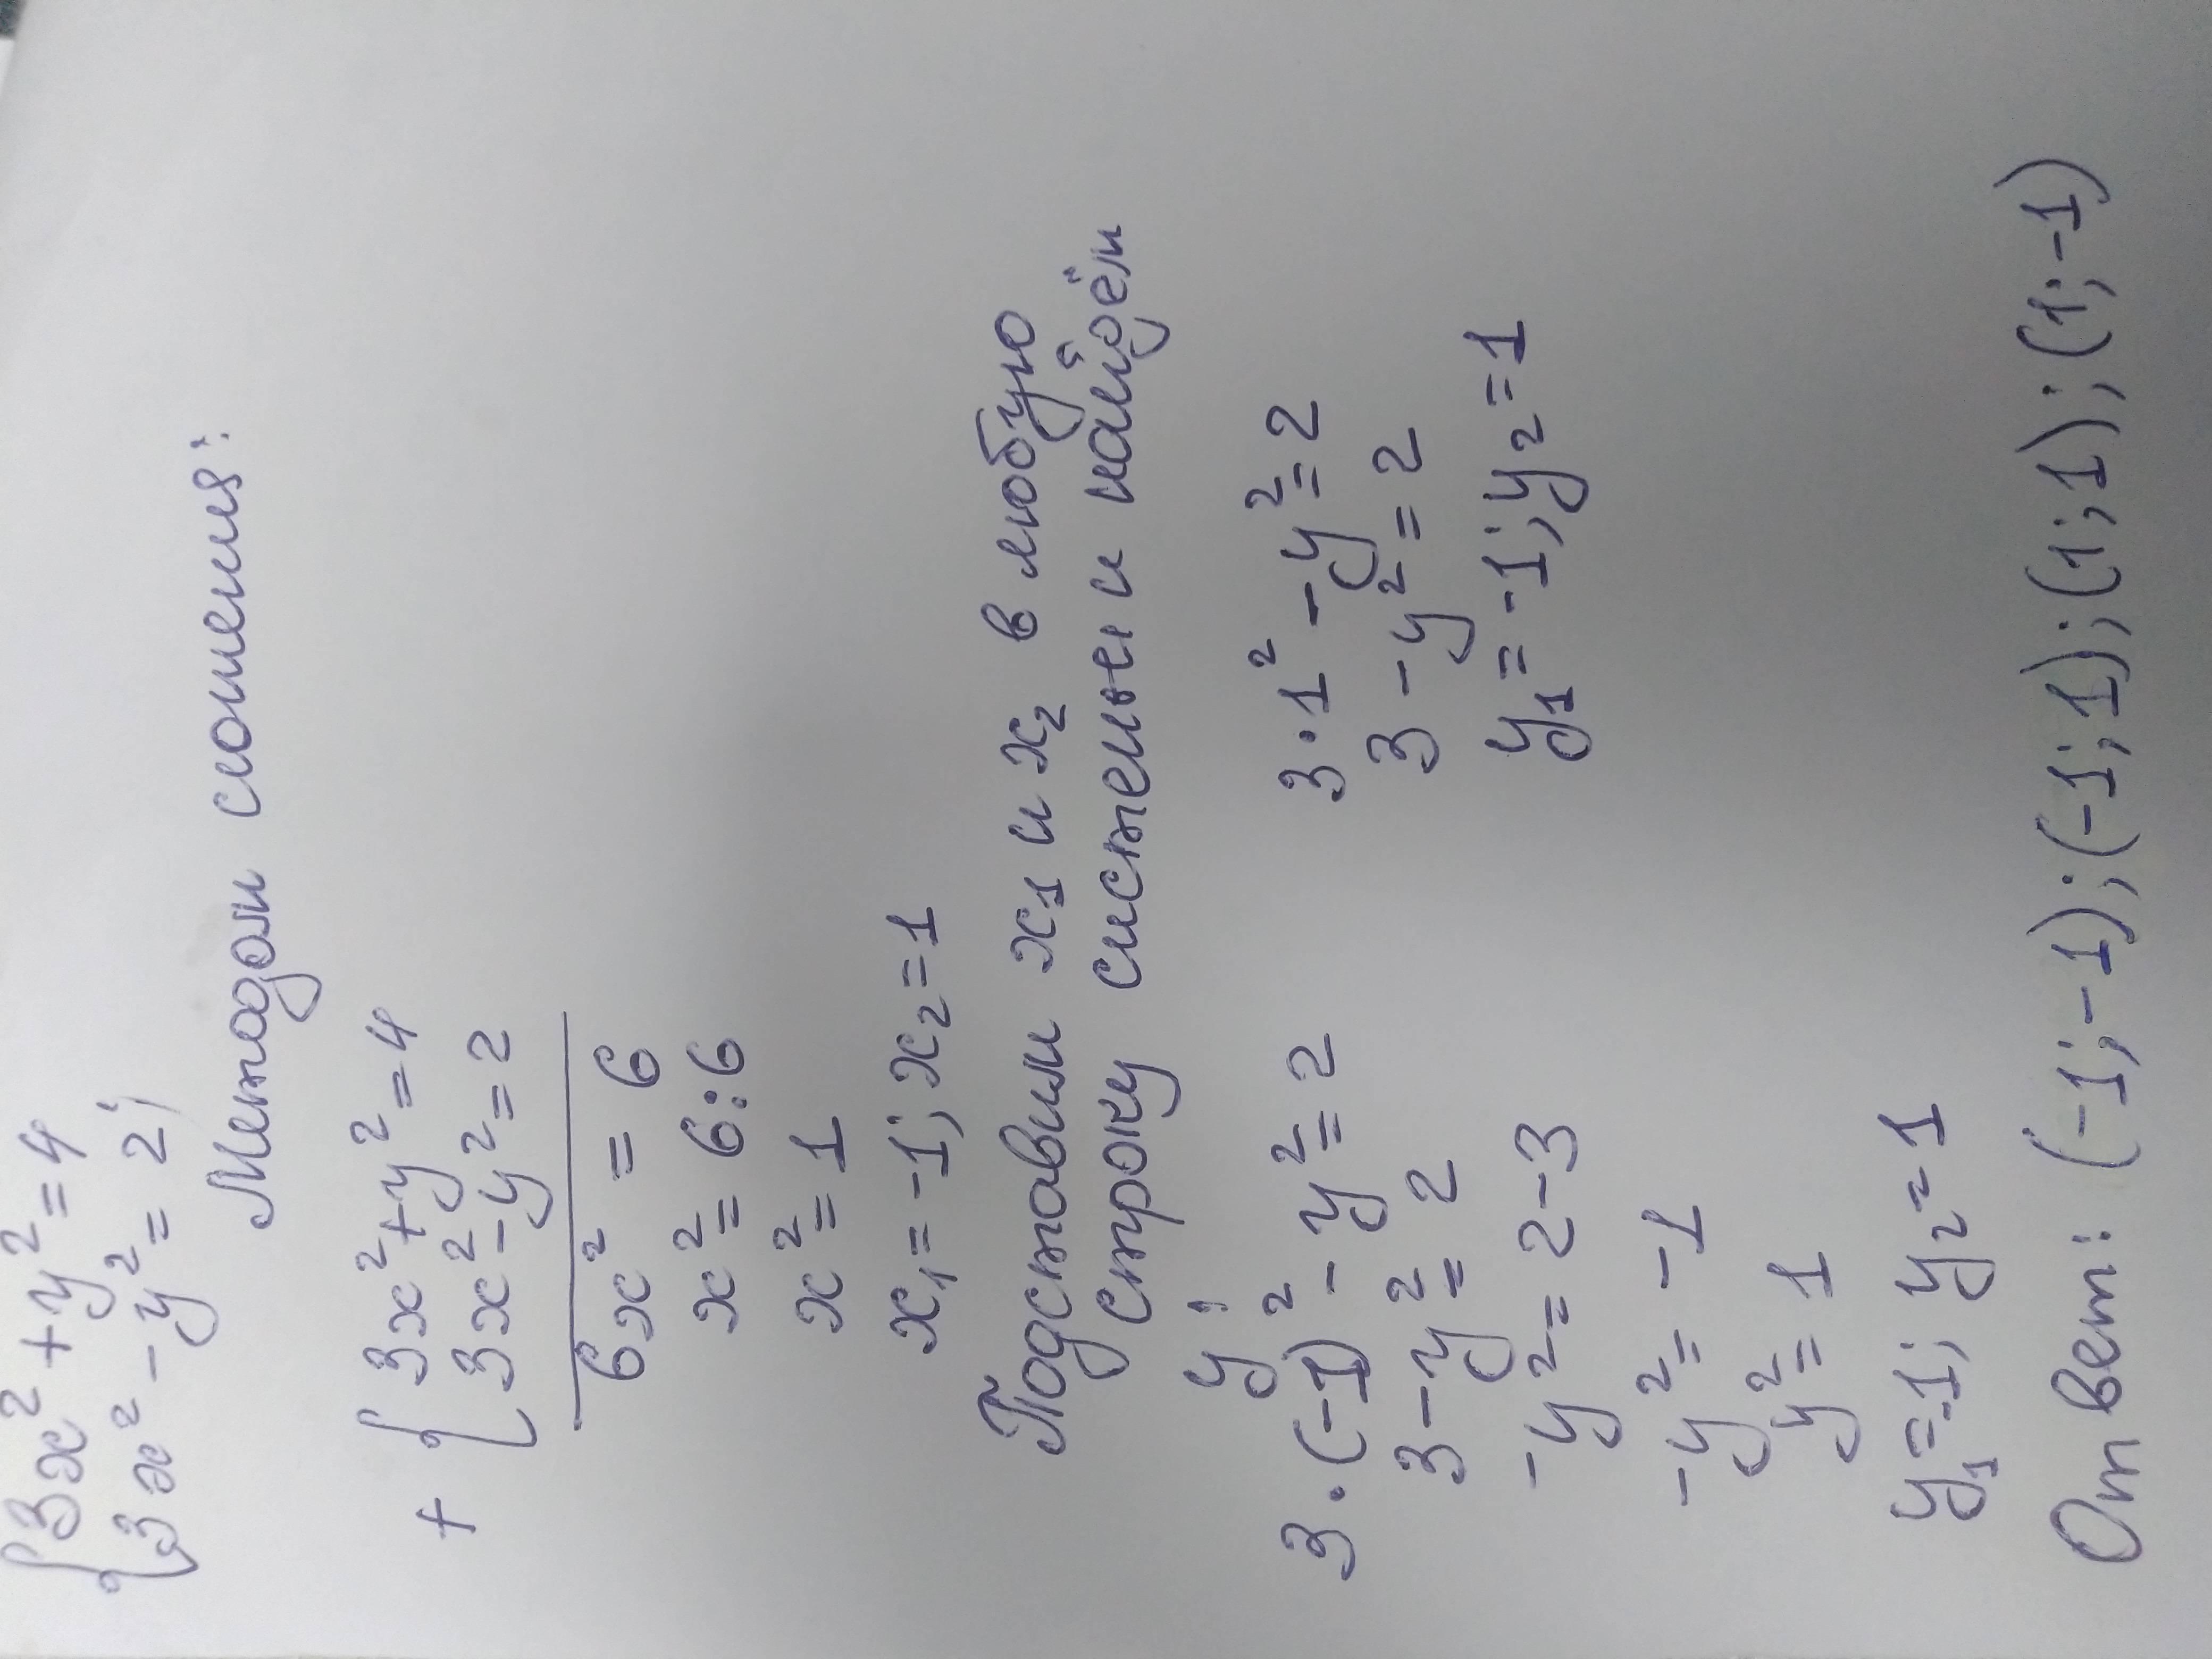 {3x² + y² = 4
{3x² - y² = 2;
Методом сложения:
+ { 3x² + y² = 4
3x² - y² = 2
6x² = 6
x² = 6:6
x² = 1
x₁ = -1; x₂ = 1
Подставим x₁ и x₂ в любую
строку системы и найдём
y:
3·(-1)² - y² = 2
3 - y² = 2
-y² = 2-3
-y² = -1
y² = 1
y₁ = -1; y₂ = 1
3·1² - y² = 2
3 - y² = 2
y₁ = -1; y₂ = 1
Ответ: (-1; -1); (-1; 1); (1; 1); (1; -1)